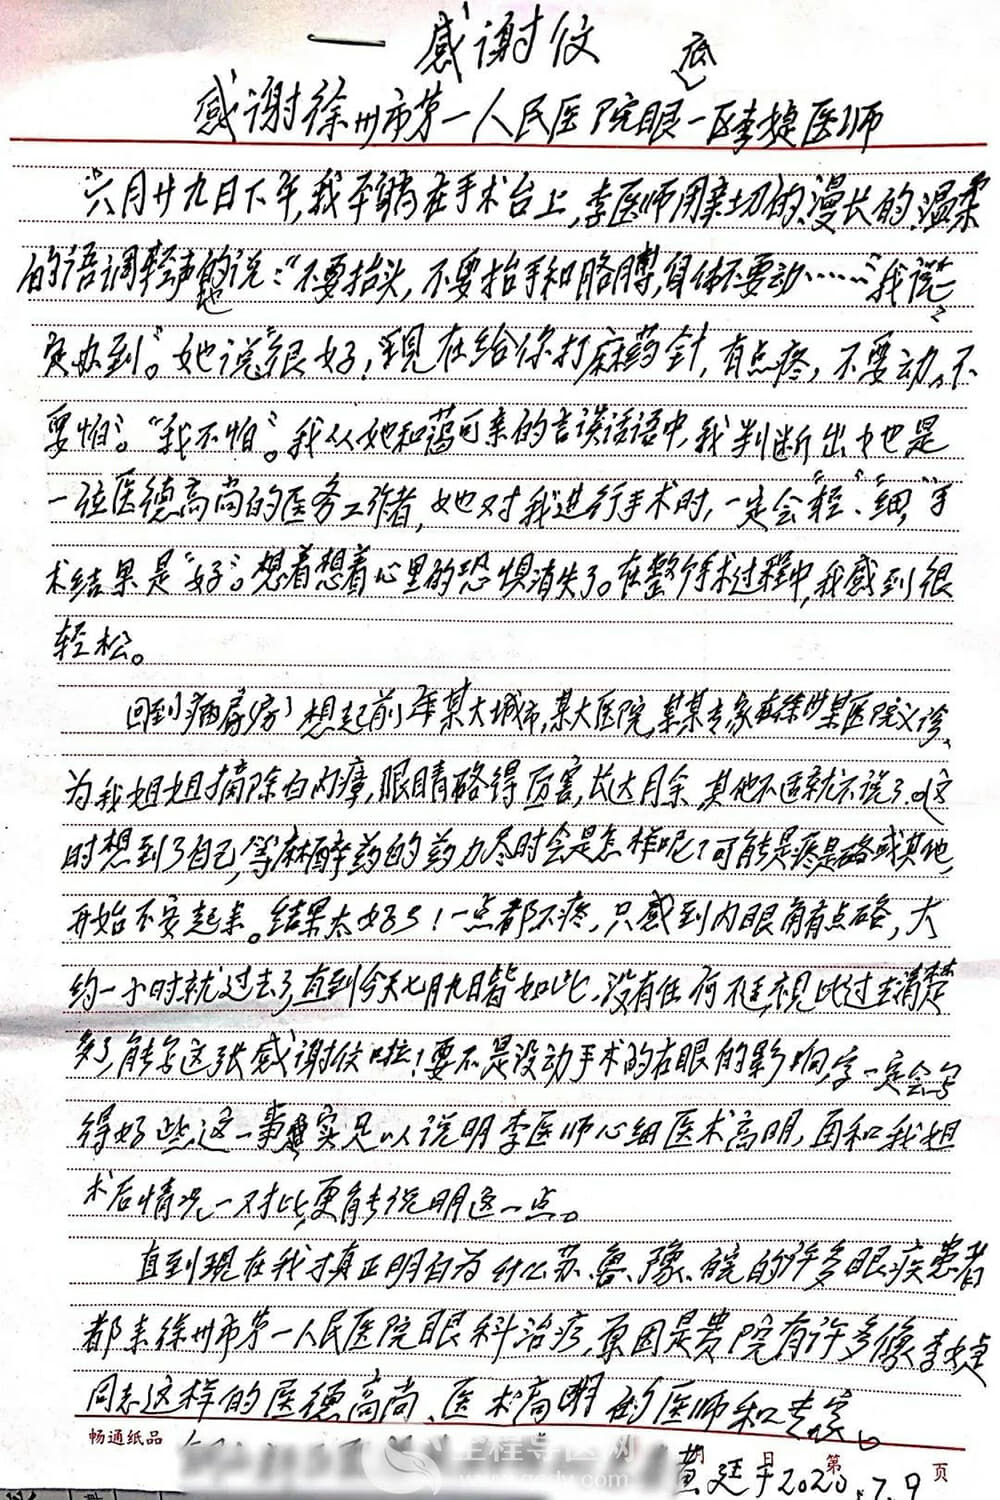 一 感谢仪
底
感谢徐州市第一人民医院眼一区李婕医师
六月廿九日下午,我平躺在手术台上,李医师用亲切的、漫长的、温柔
的语调轻声的说:“不要抬头,不要抬手和胳膊,身体不要动……”“我
她
定办到”。她说“很好!现在给你打麻药针,有点疼,不要动。不
要怕”。“我不怕”。我从她和蔼可亲的言谈话语中,我判断出她是
一位医德高尚的医务工作者,她对我进行手术时,一定会“轻”、“细”,手
术结果是“好”。想着想着心里的恐惧消失了。在整个手术过程中,我感到很
轻松。
回到病房了想起前年某大城市,某大医院,某某专家在徐州某医院义诊、
为我姐姐摘除白内障,眼睛硌得厉害,长达月余,其他不适就不说了。这
时想到了自己,等麻醉药的药力尽时会是怎样呢?可能是疼是硌或其他,
开始不安起来。结果太好了!一点都不疼,只感到内眼角有点硌,大
约一小时就过去了,直到今天七月九日皆如此、没有任何不适,视比过去清楚
多了,能写这张感谢仪啦!要不是没动手术的右眼的影响,字一定会写
得好些,这一事实足以说明李医师心细医术高明,面和我姐
术后情况一对比,更能说明这一点。
直到现在我才真正明白为什么苏、鲁、豫、皖的许多眼疾患者
都来徐州市第一人民医院眼科治疗,原因是贵院有许多像李婕
同志这样的医德高尚、医术高明的医师和专家。
畅通纸品
全程导医网
月 日 第 页
黄廷 2020.7.9